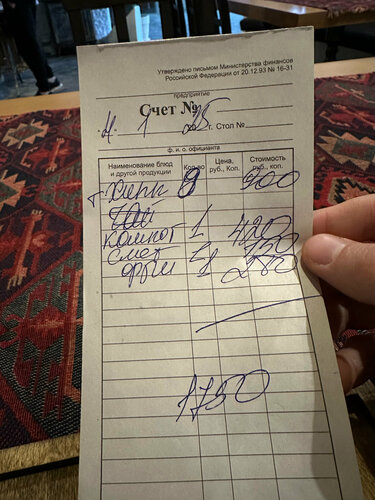 Утверждено письмом Министерства финансов
Российской Федерации от 20.12.93 № 16-31
предприятие
Счет №
4. 1 25 г. Стол №
ф. и. о. официанта
Наименование блюд и другой продукции Кол-во Цена, руб., Коп. Стоимость руб., коп.
9 900
Компот 1 420
Смет 1 150
1 280
1750